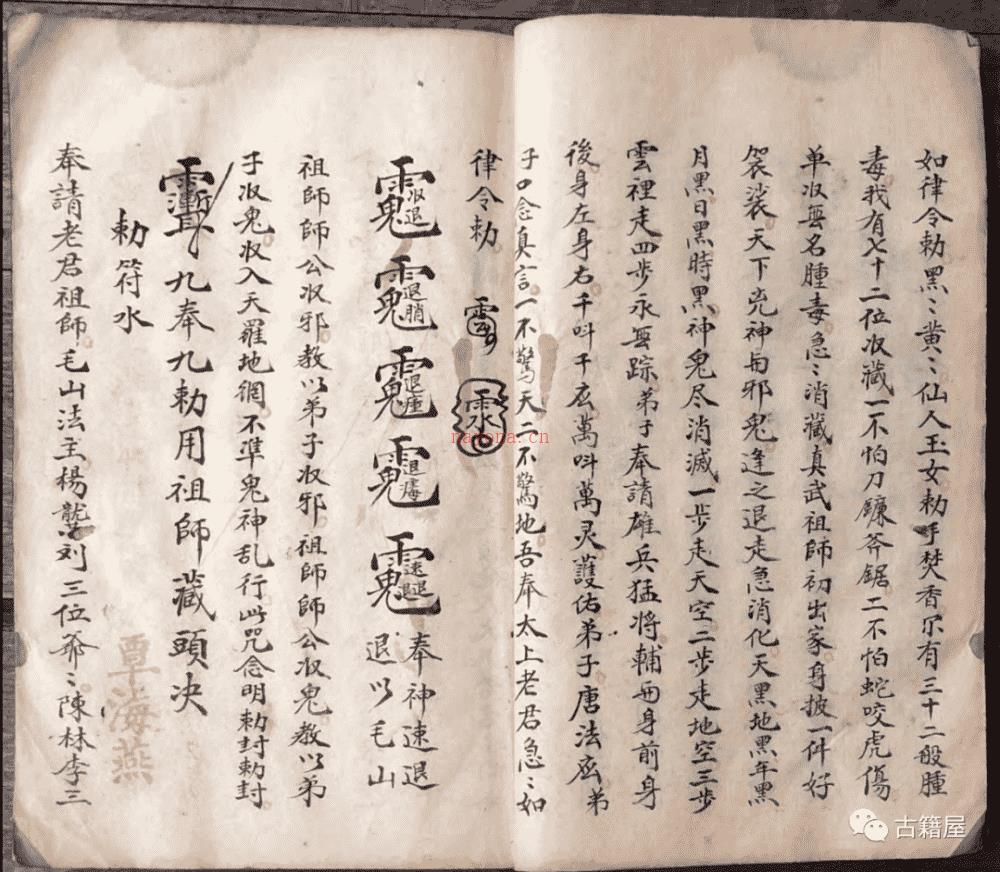 如律令勅黑〻黄〻仙人玉女勅手焚香尔有三十二般腫
毒我有七十二位收藏一不怕刀鐮斧鋸二不怕蛇咬虎傷
单收無名腫毒急〻消藏真武祖師初出家身披一件好
袈裟天下兇神与邪鬼逢之退走急消化天黑地黑年黑
月黑日黑時黑神鬼尽消滅一步走天空二步走地空三步
雲裡走四步永無踪弟子奉請雄兵猛將輔吾身前身
後身左身右千叫千应萬叫萬灵護佑弟子唐法应弟
子口念真言一不驚天二不驚地吾奉太上老君急〻如
律令勅
奉神速退
退以毛山
祖師師公收邪教以弟子收邪祖師師公收鬼教以弟
子收鬼收入天羅地網不準鬼神乱行此咒念明勅封勅封
九奉九勅用祖師藏頭决
勅符水
奉請老君祖師毛山法主楊龔刘三位爺〻陳林李三
覃海燕
nayona.cn
古籍屋